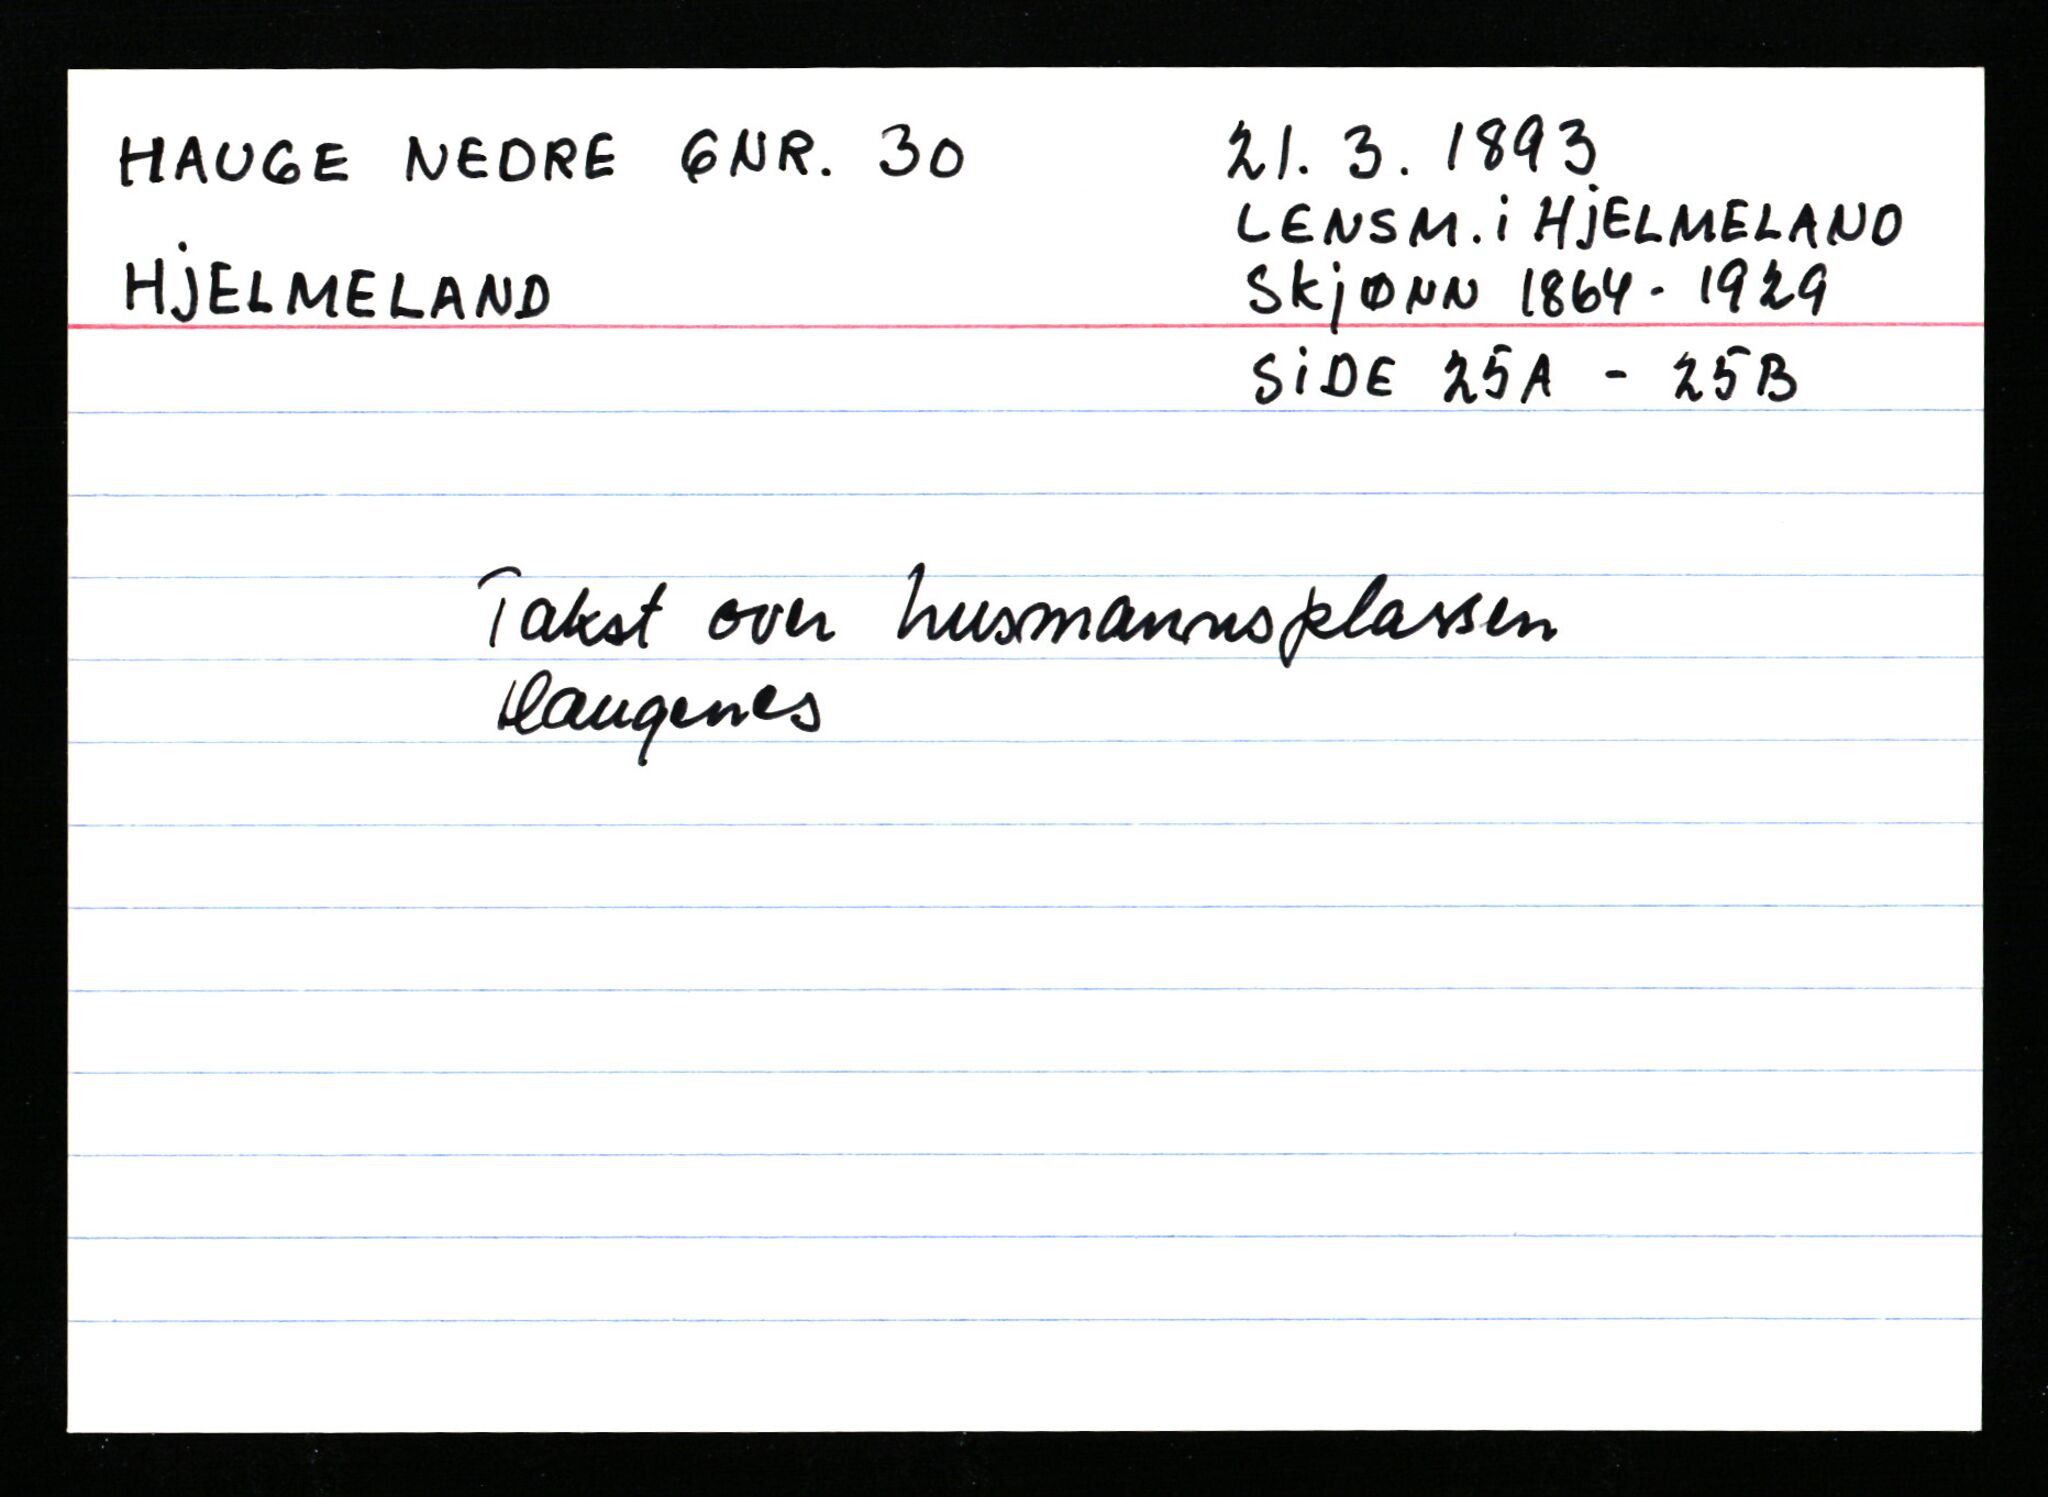 HAUGE NEDRE GNR. 30
HJELMELAND
21. 3. 1893
LENSM. i HJELMELAND
SKJØNN 1864 - 1929
SIDE 25A - 25B
Takst over husmannsplassen
Haugenes